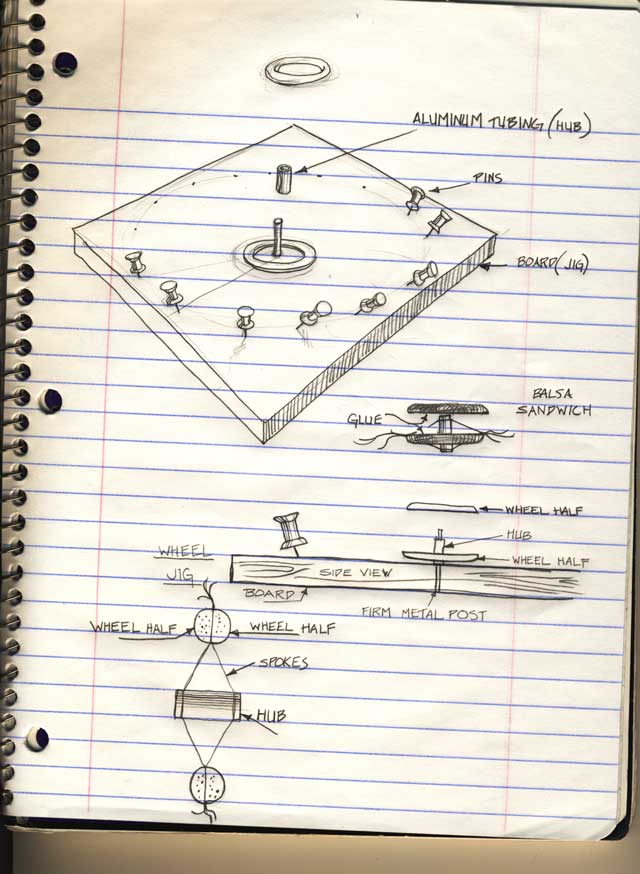 ALUMINUM TUBING (HUB)
PINS
BOARD (JIG)
BALSA
SANDWICH
GLUE
WHEEL HALF
HUB
WHEEL HALF
WHEEL
JIG
SIDE VIEW
BOARD
FIRM METAL POST
WHEEL HALF
WHEEL HALF
SPOKES
HUB